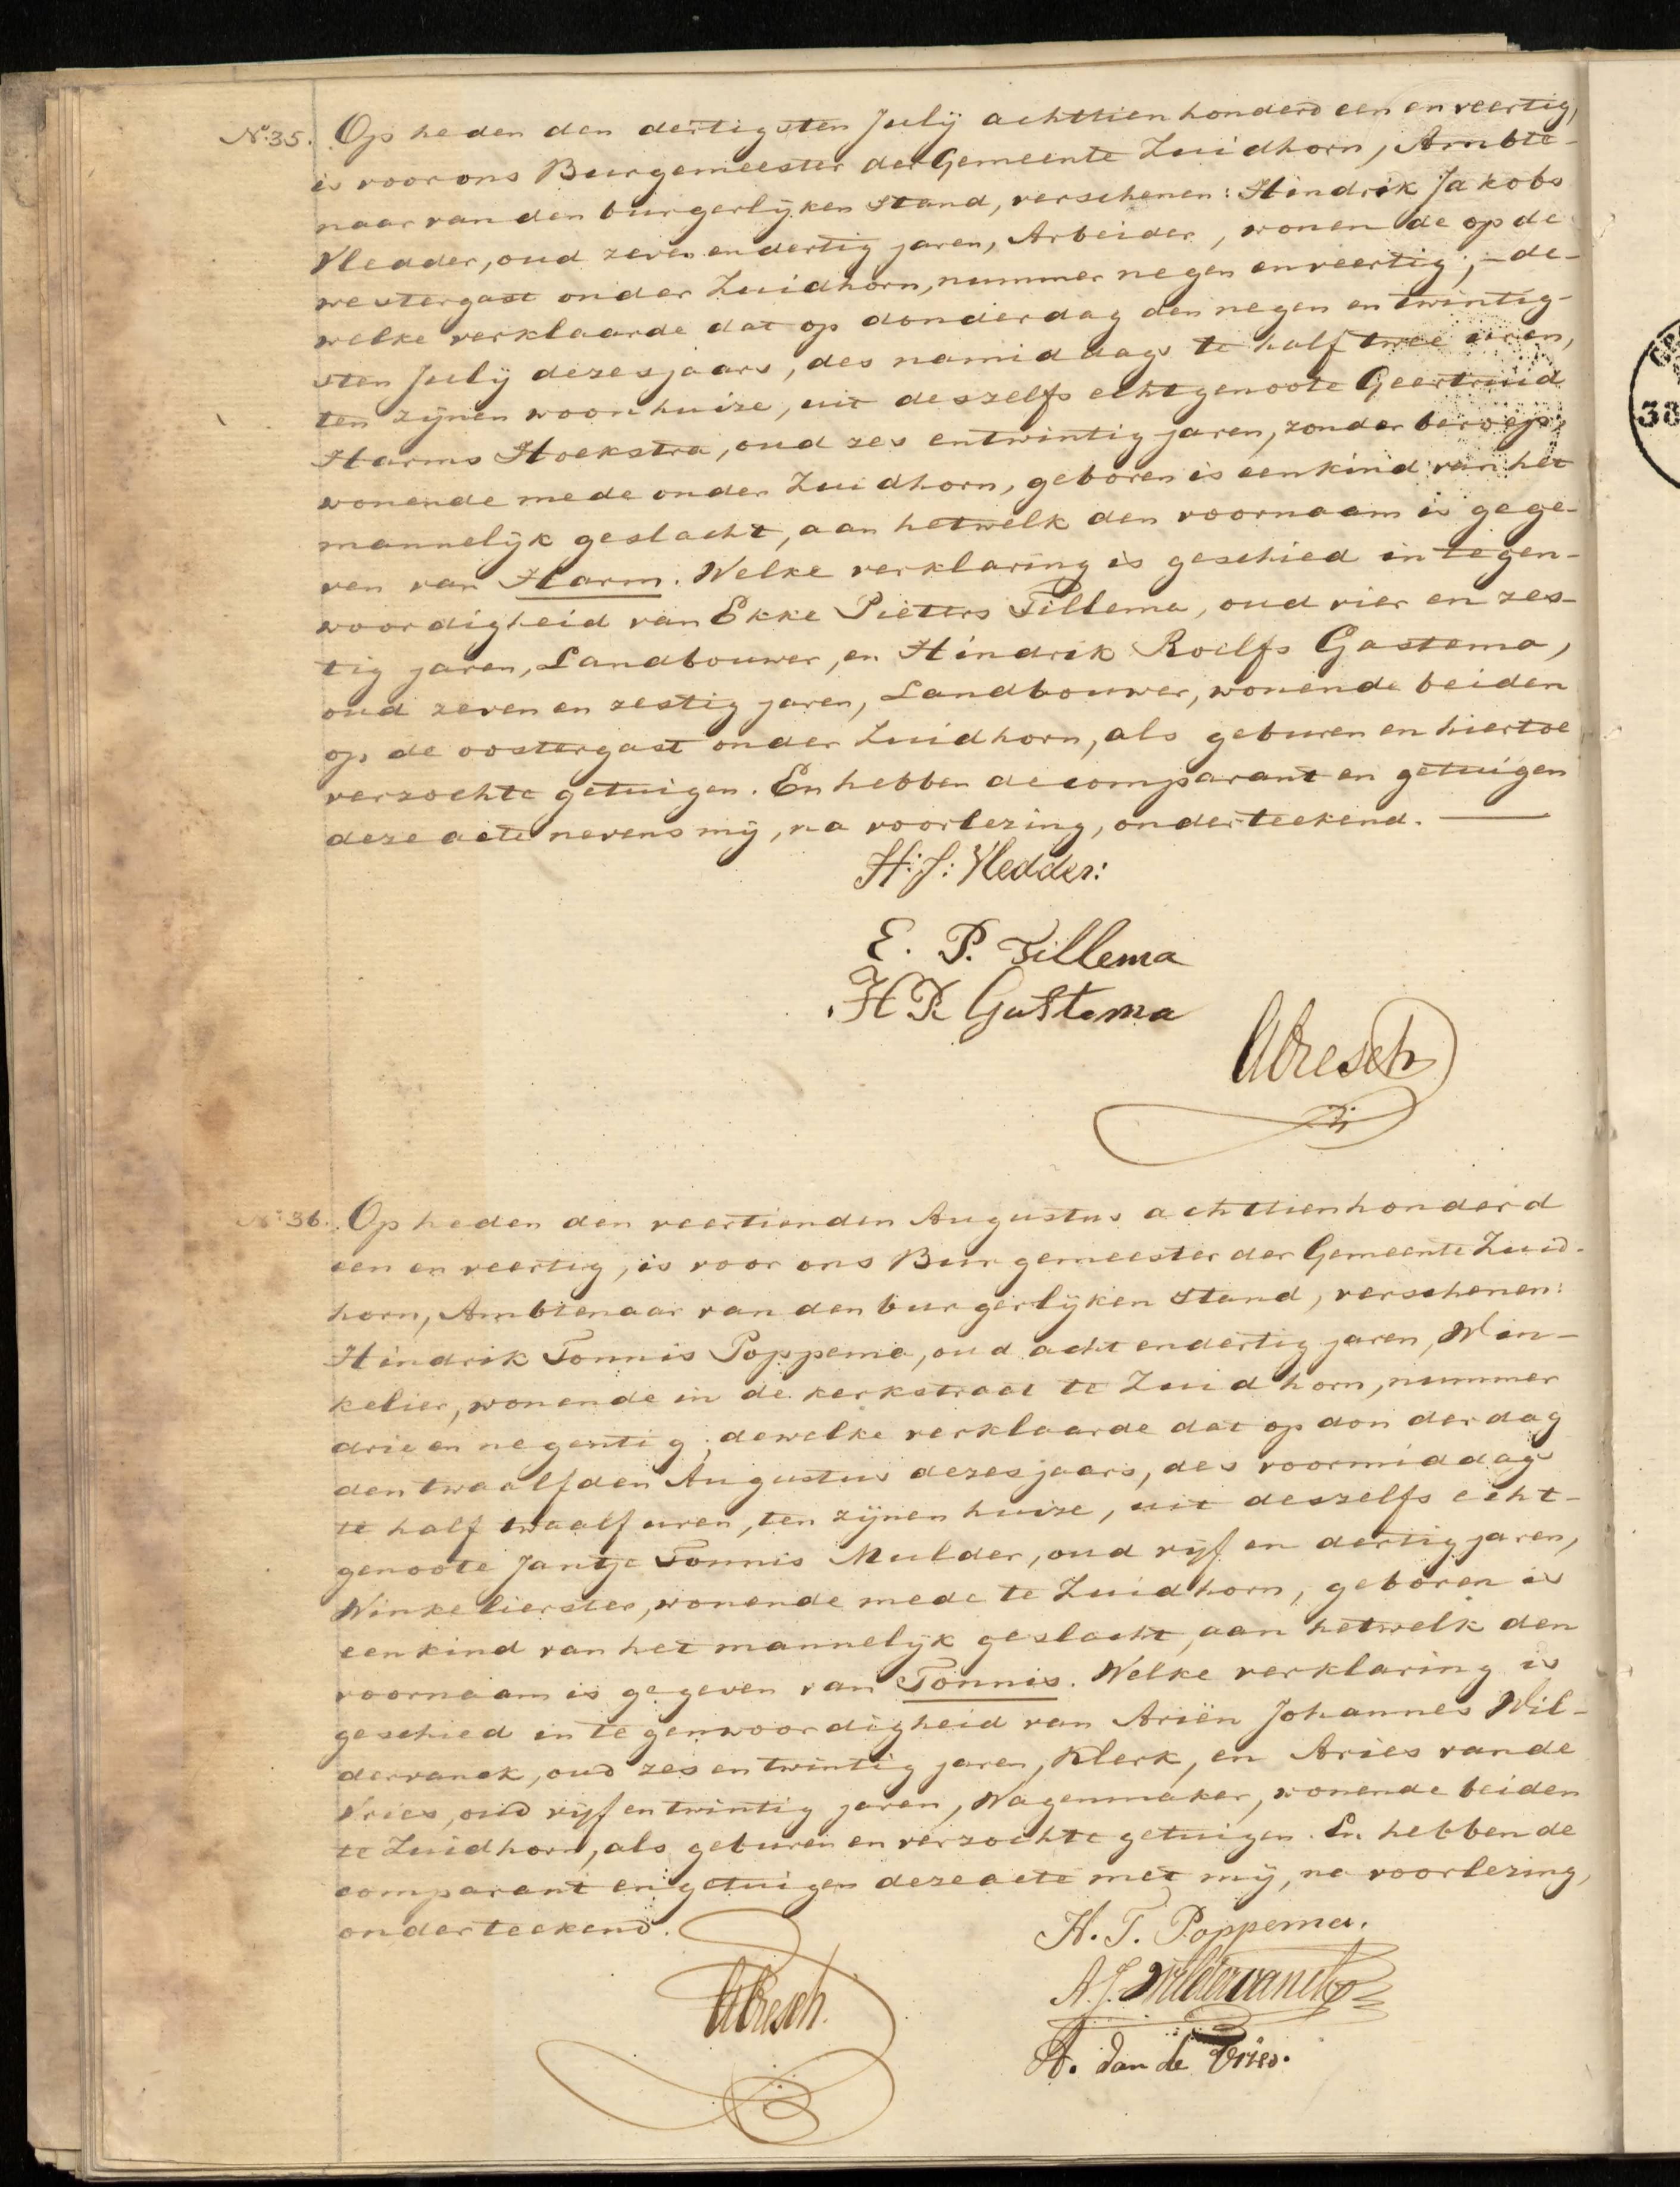 N.º 35. Op heden den dertigsten Julij achttien honderd een en veertig,
is voor ons Burgemeester der Gemeente Zuidhorn, Ambte-
naar van den burgerlijken stand, verschenen: Hindrik Jakobs
Vledder, oud zeven en dertig jaren, Arbeider, wonende op de
westergast onder Zuidhorn, nummer negen en veertig; - de-
welke verklaarde dat op donderdag den negen en twintig-
sten Julij dezes jaars, des namiddags te half twee uren,
ten zijnen woonhuize, uit deszelfs echtgenoote Geertruid
Harms Hoekstra, oud zes en twintig jaren, zonder beroep,
wonende mede onder Zuidhorn, geboren is een kind van het
mannelijk geslacht, aan hetwelk den voornaam is gege-
ven van Harm. Welke verklaring is geschied in tegen-
woordigheid van Ekke Pieters Tillema, oud vier en zes-
tig jaren, Landbouwer, en Hindrik Roelfs Gastema,
oud zeven en zestig jaren, Landbouwer, wonende beiden
op de oostergast onder Zuidhorn, als geburen en hiertoe
verzochte getuigen. En hebben de comparant en getuigen
deze acte nevens mij, na voorlezing, onderteekend. —
H: J: Vledder:
E. P. Tillema
H R Gastema
Abresch
N.º 36. Op heden den veertienden Augustus achttienhonderd
een en veertig, is voor ons Burgemeester der Gemeente Zuid-
horn, Ambtenaar van den burgerlijken stand, verschenen:
Hindrik Tonnis Poppema, oud acht en dertig jaren, Win-
kelier, wonende in de kerkstraat te Zuidhorn, nummer
drie en negentig; dewelke verklaarde dat op donderdag
den twaalfden Augustus dezes jaars, des voormiddags
te half twaalf uren, ten zijnen huize, uit deszelfs echt-
genoote Jantje Tonnis Mulder, oud vijf en dertig jaren,
Winkelierster, wonende mede te Zuidhorn, geboren is
een kind van het mannelijk geslacht, aan hetwelk den
voornaam is gegeven van Tonnis. Welke verklaring is
geschied in tegenwoordigheid van Ariën Johannes Wil-
dervanck, oud zes en twintig jaren, Klerk, en Aries van de
Vries, oud vijf en twintig jaren, Wagenmaker, wonende beiden
te Zuidhorn, als geburen en verzochte getuigen. En hebben de
comparant en getuigen deze acte met mij, na voorlezing,
onderteekend.
H. T. Poppema.
A. J. Wildervanck
Abresch.
A. van de Vries.
38